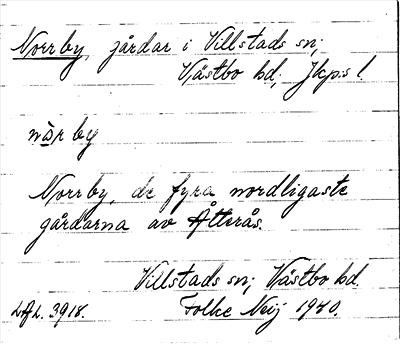 Norrby, gårdar i Villstads sn;
Västbo hd; Jkps l.
nòr by
Norrby, de fyra nordligaste
gårdarna av Åtterås.
Villstads sn; Västbo hd.
LAL. 3918. Folke Neij 1940.